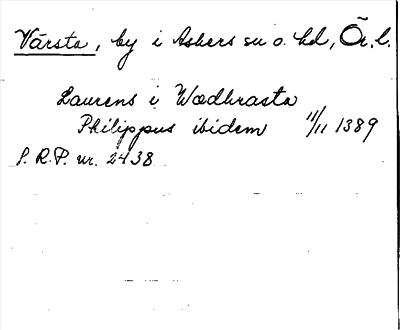 Vårsta, by i Askers sn o. hd, Ör. l.
Laurens i Wædhrasta
Philippus ibidem 11/11 1389
S. R. P. nr. 2438